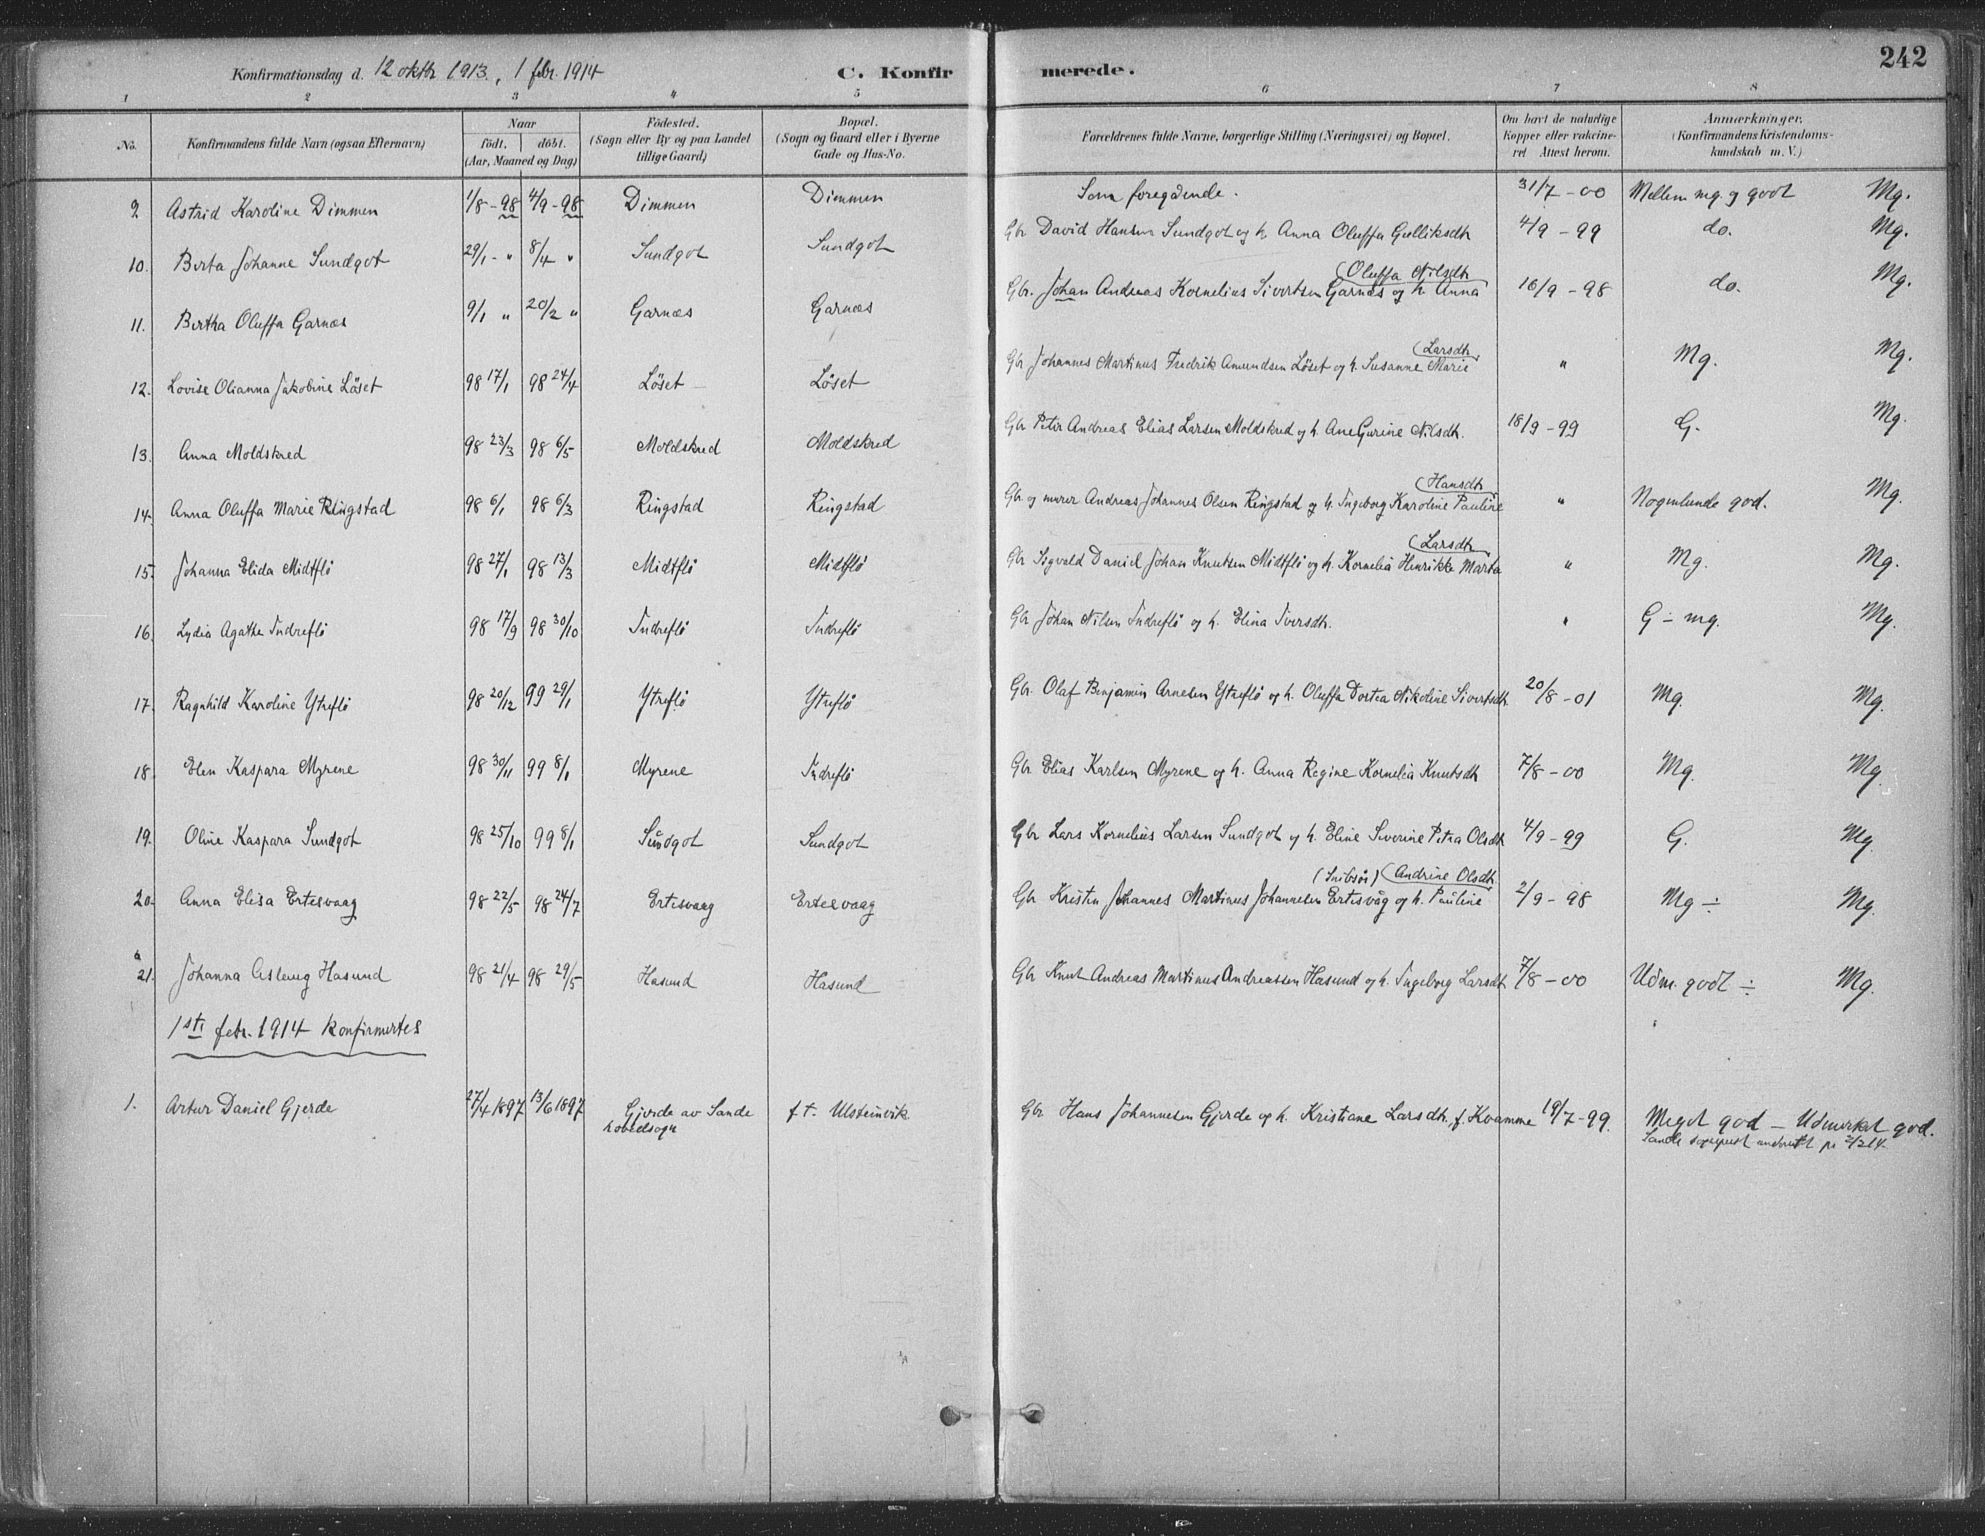 242
Konfirmationsdag d. 12 oktbr 1913, 1 febr. 1914 C. Konfirmerede.
1 2 3 4 5 6 7 8
No. Konfirmandens fulde Navn (ogsaa Efternavn) Naar født. døbt. (Aar, Maaned og Dag) Fødested. (Sogn eller By og paa Landet tillige Gaard) Bopæl. (Sogn og Gaard eller i Byerne Gade og Hus-No. Forældrenes fulde Navne, borgerlige Stilling (Næringsvei) og Bopæl. Om havt de naturlige Kopper eller vakcineret Attest herom. Anmærkninger. (Konfirmandens Kristendomskundskab m. V.)
9. Astrid Karoline Dimmen 1/8 - 98 4/9 - 98 Dimmen Dimmen Som foregående. 31/7 - 00 Mellem mg. og godt Mg.
10. Berta Johanne Sundgot 29/1 - " 8/4 " Sundgot Sundgot Gbr David Hansen Sundgot og h. Anna Oluffa Gulliksdtr 4/9 - 99 do. Mg.
(Oluffa Nilsdtr
11. Bertha Oluffa Garnæs 9/1 " 20/2 " Garnæs Garnæs Gbr. Johan Andreas Kornelius Sivertsen Garnæs og h. Anna 16/9 - 98 do. Mg.
(Larsdtr
12. Lovise Olianna Jakobine Løset 98 17/1 98 24/4 Løset Løset Gbr Johannes Martinus Fredrik Amundsen Løset og h. Susanne Marie " Mg. Mg.
13. Anna Moldskred 98 23/3 98 6/5 Moldskred Moldskred Gbr Peter Andreas Elias Larsen Moldskred og h. Ane Gurine Nilsdtr. 18/9 - 99 G. Mg.
(Hansdtr
14. Anna Oluffa Marie Ringstad 98 6/1 98 6/3 Ringstad Ringstad Gbr og murer Andreas Johannes Olsen Ringstad og h. Ingeborg Karoline Pauline " Nogenlunde god. Mg.
(Larsdtr
15. Johanna Elida Midtflø 98 27/1 98 13/3 Midtflø Midtflø Gbr Sigvald Daniel Johan Knutsen Midtflø og h. Kornelia Henrikke Marta " Mg. Mg.
16. Lydia Agathe Indreflø 98 17/9 98 30/10 Indreflø Indreflø Gbr Johan Nilsen Indreflø og h. Elina Iversdtr. " G - mg. Mg.
17. Ragnhild Karoline Ytreflø 98 20/12 99 29/1 Ytreflø Ytreflø Gbr. Olaf Benjamin Arnesen Ytreflø og h. Oluffa Dortea Nikoline Sivertsdtr. 20/8 - 01 Mg. Mg.
18. Elen Kaspara Myrene 98 30/11 99 8/1 Myrene Indreflø Gbr Elias Karlsen Myrene og h. Anna Regine Kornelia Knutsdtr 7/8 - 00 Mg. Mg.
19. Oline Kaspara Sundgot 98 25/10 99 8/1 Sundgot Sundgot Gbr Lars Kornelius Larsen Sundgot og h. Eline Severine Petra Olsdtr 4/9 - 99 G. Mg.
(Andrine Olsdtr.
20. Anna Elisa Ertesvaag 98 22/5 98 24/7 Ertesvaag Ertesvaag Gbr Kristen Johannes Martinus Johannesen Ertesvåg og h. Pauline 2/9 - 98 Mg ÷ Mg.
21. Johanna Aslaug Hasund 98 21/4 98 29/5 Hasund Hasund Gbr Knut Andreas Martinus Andreassen Hasund og h. Ingeborg Larsdtr 7/8 - 00 Udm. godt ÷ Mg.
1ste febr. 1914 konfirmertes
1. Artur Daniel Gjerde 27/4 1897 13/6 1897 Gjerde av Sande hovedsogn f. t. Ulsteinvik Gbr Hans Johannesen Gjerde og h. Kristiane Larsdtr., f. Kvamme 19/7 - 99. Meget god - Udmerket god.